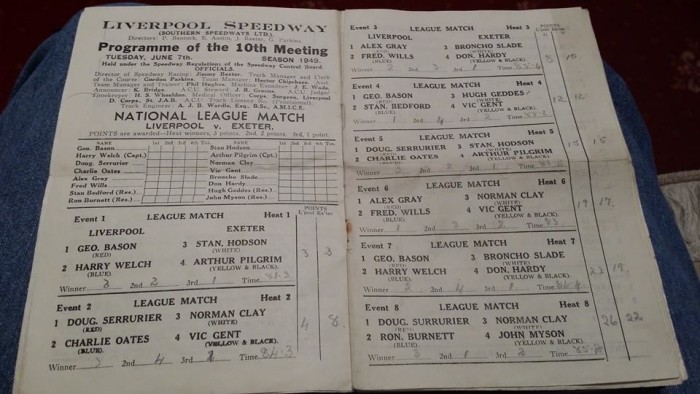 LIVERPOOL SPEEDWAY
(SOUTHERN SPEEDWAYS LTD.)
Directors: P. Bostock, E. Austin, J. Baxter, G. Parkins.
Programme of the 10th Meeting
TUESDAY, JUNE 7th. SEASON 1949.
Held under the Speedway Regulations of the Speedway Control Board.
OFFICIALS.
Director of Speedway Racing: Jimmy Baxter. Track Manager and Clerk
of the Course: Gordon Parkins. Team Manager:
Team Manager and Trainer: Phil Hughes. Machine Examiner: J. E. Wade.
Announcer: K. Bridge. A.C.U. Steward: J. R. A.C.U. Judge:
Timekeeper: H. S. Wheeldon. Medical Officer: Corps. Surgeon, Liverpool
D. Corps, St. J.A.B. A.C.U. Track Licence No.
Track Engineer: A. J. B. Wardle, Esq., B.Sc., A.M.I.C.E.
NATIONAL LEAGUE MATCH
LIVERPOOL v. EXETER.
POINTS are awarded—Heat winners, 3 points, 2nd, 2 points, 3rd, 1 point.
NAME 1st 2nd 3rd 4th Tot. NAME 1st 2nd 3rd 4th Tot.
Geo. Bason Stan Hodson
Harry Welch (Capt.) Arthur Pilgrim (Cpt.)
Doug. Serrurier Norman Clay
Charlie Oates Vic Gent
Alex Gray Broncho Slade
Fred Wills Don Hardy
Stan Bedford (Res.) Hugh Geddes (Res.)
Ron Burnett (Res.) John Myson (Res.)
Event 1 LEAGUE MATCH Heat 1
POINTS
LIVERPOOL EXETER
1 GEO. BASON 3 STAN, HODSON
(RED) (WHITE)
2 HARRY WELCH 4 ARTHUR PILGRIM
(BLUE) (YELLOW & BLACK).
3 3
Winner 3 2nd 2 3rd 1 Time
Event 2 LEAGUE MATCH Heat 2
1 DOUG. SERRURIER 3 NORMAN CLAY
(RED) (WHITE)
2 CHARLIE OATES 4 VIC GENT
(BLUE). (YELLOW & BLACK).
4 8
Winner 3 2nd 4 3rd Time 84.3
Event 3 LEAGUE MATCH Heat 3
POINTS
LIVERPOOL EXETER
1 ALEX GRAY 3 BRONCHO SLADE
(RED) (WHITE)
2 FRED. WILLS 4 DON. HARDY
(BLUE) (YELLOW & BLACK)
Winner 2nd 3rd Time
Event 4 LEAGUE MATCH Heat 4
1 GEO. BASON 3 HUGH GEDDES
(RED) (WHITE)
2 STAN. BEDFORD 4 VIC GENT
(BLUE) (YELLOW & BLACK)
12 12
Winner 1 2nd 4 3rd 2 Time
Event 5 LEAGUE MATCH Heat 5
1 DOUG. SERRURIER 3 STAN, HODSON
(RED) (WHITE)
2 CHARLIE OATES 4 ARTHUR PILGRIM
(BLUE) (YELLOW & BLACK)
15 15
Winner 2nd 3rd Time
Event 6 LEAGUE MATCH Heat 6
1 ALEX GRAY 3 NORMAN CLAY
(RED) (WHITE)
2 FRED. WILLS 4 VIC GENT
(BLUE) (YELLOW & BLACK)
19 17
Winner 1 2nd 3rd 2 Time 83
Event 7 LEAGUE MATCH Heat 7
1 GEO. BASON 3 BRONCHO SLADE
(RED) (WHITE)
2 HARRY WELCH 4 DON. HARDY
(BLUE) (YELLOW & BLACK).
23 19
Winner 2 2nd 4 3rd 1 Time
Event 8 LEAGUE MATCH Heat 8
1 DOUG. SURRURIER 3 NORMAN CLAY
(RED) (WHITE)
2 RON. BURNETT 4 JOHN MYSON
(BLUE). (YELLOW & BLACK)
26 22
Winner 3 2nd 1 3rd 2 Time